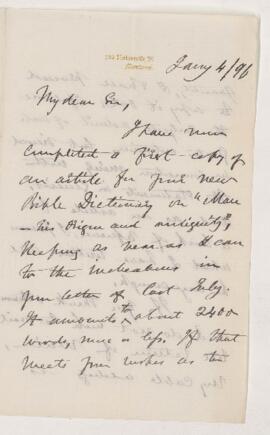 293 University St.
Montreal.
Jany 4/96
My dear Sir,
I have now
completed a first copy of
an article for your new
Bible Dictionary on "Man
– his Origin and antiquity",
Keeping as near as I can
to the indications in
your letter of last July.
It amounts to about 2400
words, more or less. If that
meets your wishes as to